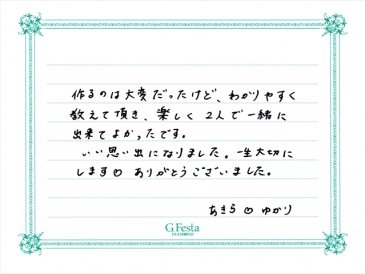 作るのは大変だったけど、わかりやすく
教えて頂き、楽しく2人で一緒に
出来てよかったです。
いい思い出になりました。一生大切に
します♡ ありがとうございました。
あきら♡ゆかり
G.Festa